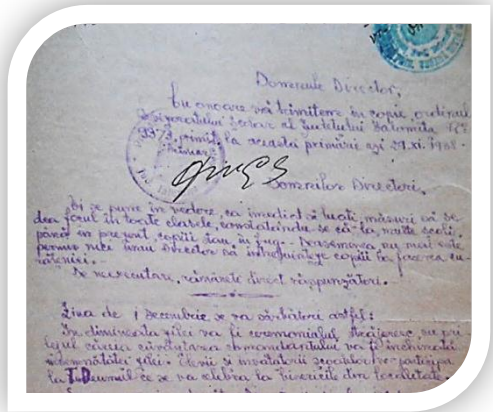 Domnule Director,
Cu onoare vă trimitem în copie, ordinul
Inspectoratului Școlar al Județului Ialomița No
primit la această primărie azi 27.XI.1918.
Primar
Domnilor Directori,
Vi se pune în vedere, ca imediat să luați, măsuri să se
dea focul în toate clasele, constatându-se că la multe școli
până în prezent, copiii stau în frig. - Deasemenea nu mai este
permis nici unui Director să întrebuințeze copiii la facerea cu-
rățeniei. -
De neexecutare, rămâneți direct răspunzători.
Ziua de 1 Decembrie se va sărbători astfel:
În dimineața zilei va fi ceremonialul străjeresc, cu pri-
lejul căruia cuvântarea comandantului va fi închinată
însemnătății zilei. Elevii și învățătorii școalelor vor participa
la T.Deumul ce se va celebra la bisericile din localitate.